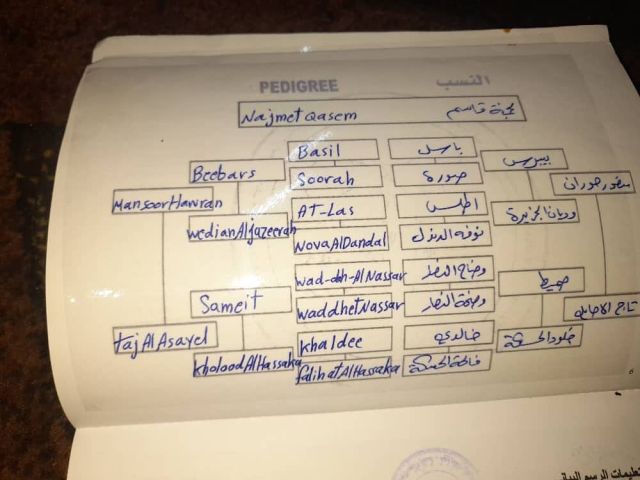 PEDIGREE النسب
Najmet Qasem نجمة قاسم
Basil باسل
Beebars بيبرس
Soorah صورة
MansoorHawran منصور حوران
AT-Las اطلس
wedianAljazeerah وديان الجزيرة
NovaAlDandal نوفه الدندل
wad-dah-AlNassar وضاح النصار
Sameit صميط
waddhetNassar وضحة النصار
tajAlAsayel تاج الاصايل
khaldee خالدي
kholoodAlHassaka خلود الحسكة
falihatAlHassaka فالحة الحسكة